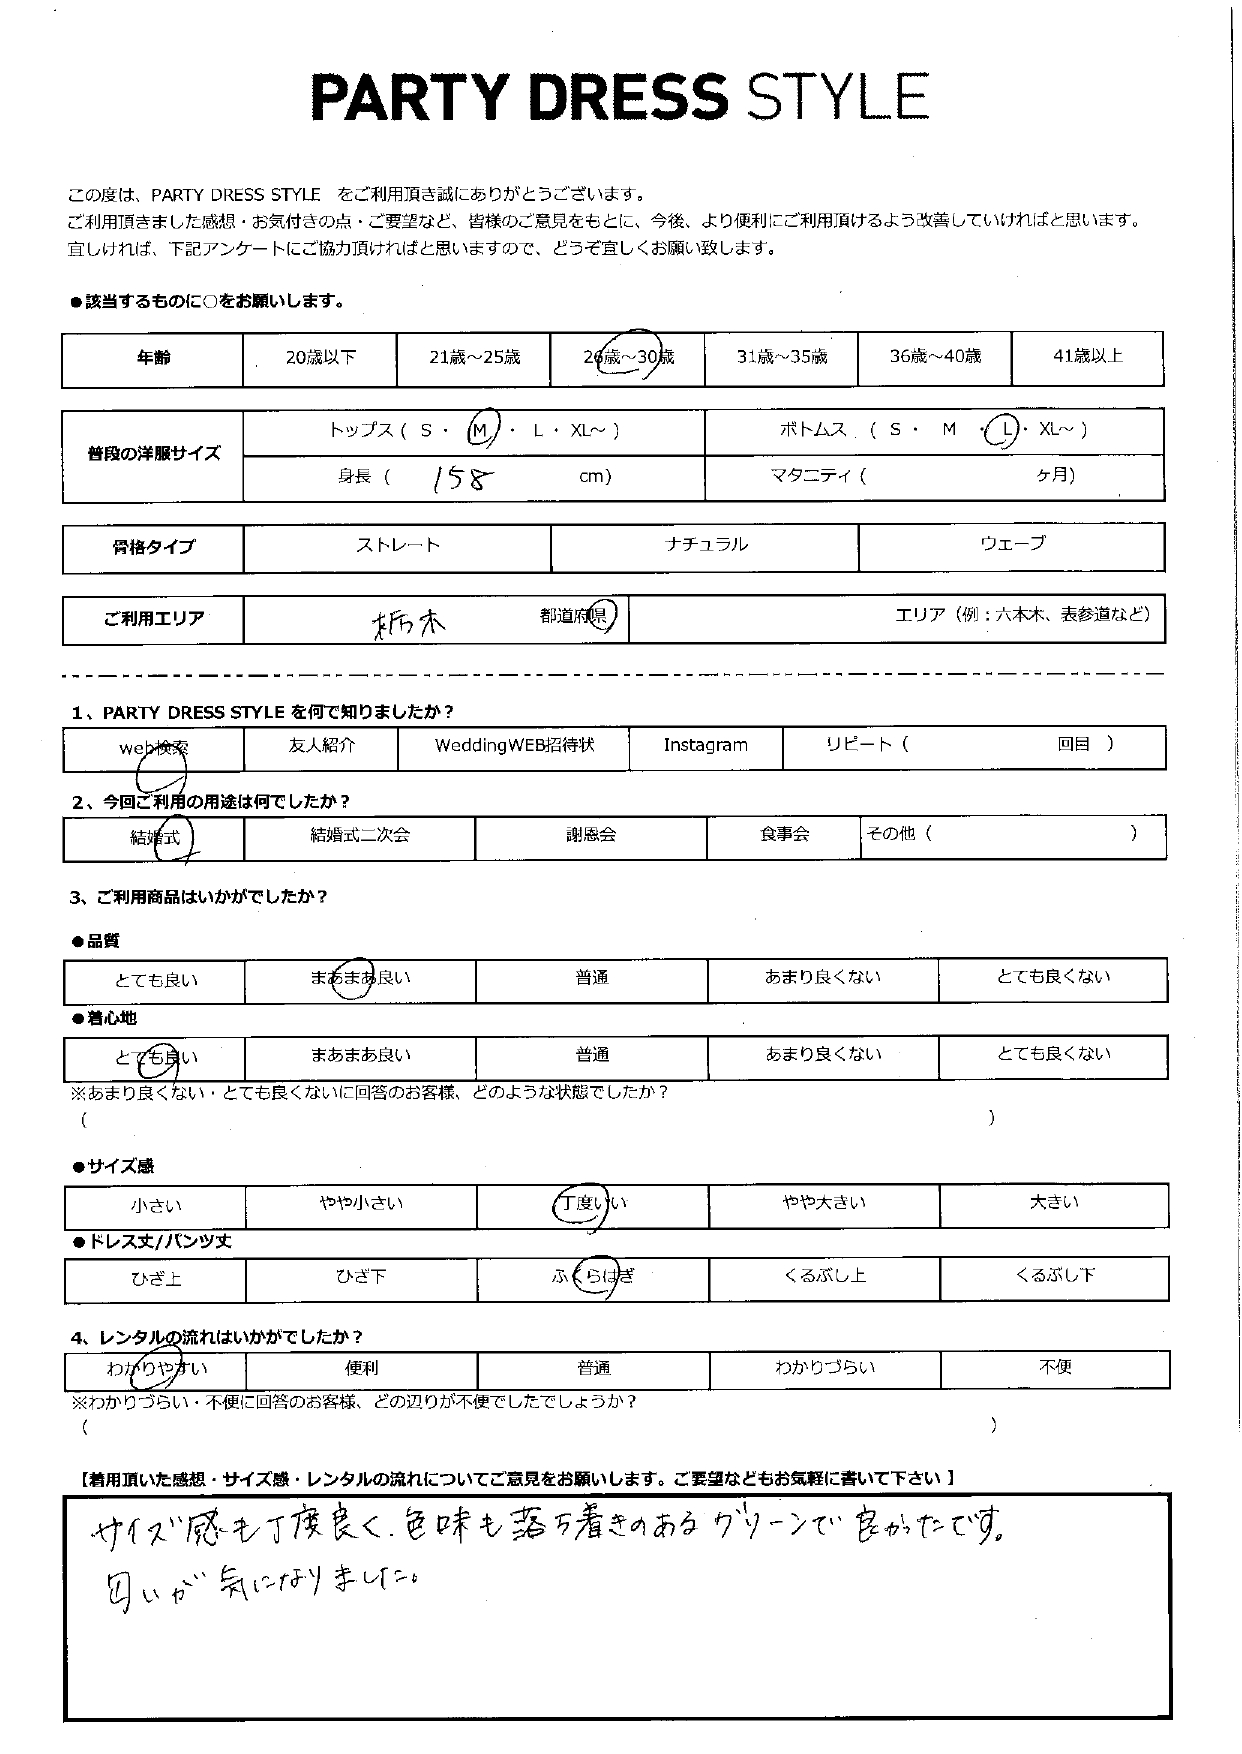 PARTY DRESS STYLE
この度は、PARTY DRESS STYLE をご利用頂き誠にありがとうございます。
ご利用頂きました感想・お気付きの点・ご要望など、皆様のご意見をもとに、今後、より便利にご利用頂けるよう改善していければと思います。
宜しければ、下記アンケートにご協力頂ければと思いますので、どうぞ宜しくお願い致します。
●該当するものに○をお願いします。
年齢 20歳以下 21歳～25歳 26歳～30歳 31歳～35歳 36歳～40歳 41歳以上
普段の洋服サイズ トップス ( S ・ M ・ L ・ XL～ ) ボトムス ( S ・ M ・ L ・ XL～ )
身長 ( 158 cm) マタニティ ( ヶ月)
骨格タイプ ストレート ナチュラル ウェーブ
ご利用エリア 栃木 都道府県 エリア（例：六本木、表参道など）
1、PARTY DRESS STYLE を何で知りましたか？
web検索 友人紹介 WeddingWEB招待状 Instagram リピート ( 回目 )
2、今回ご利用の用途は何でしたか？
結婚式 結婚式二次会 謝恩会 食事会 その他 ( )
3、ご利用商品はいかがでしたか？
●品質
とても良い まあまあ良い 普通 あまり良くない とても良くない
●着心地
とても良い まあまあ良い 普通 あまり良くない とても良くない
※あまり良くない・とても良くないに回答のお客様、どのような状態でしたか？
( )
●サイズ感
小さい やや小さい 丁度いい やや大きい 大きい
●ドレス丈/パンツ丈
ひざ上 ひざ下 ふくらはぎ くるぶし上 くるぶし下
4、レンタルの流れはいかがでしたか？
わかりやすい 便利 普通 わかりづらい 不便
※わかりづらい・不便に回答のお客様、どの辺りが不便でしたでしょうか？
( )
【着用頂いた感想・サイズ感・レンタルの流れについてご意見をお願いします。ご要望などもお気軽に書いて下さい】
サイズ感も丁度良く、色味も落ち着きのあるグリーンで良かったです。
匂いが気になりました。